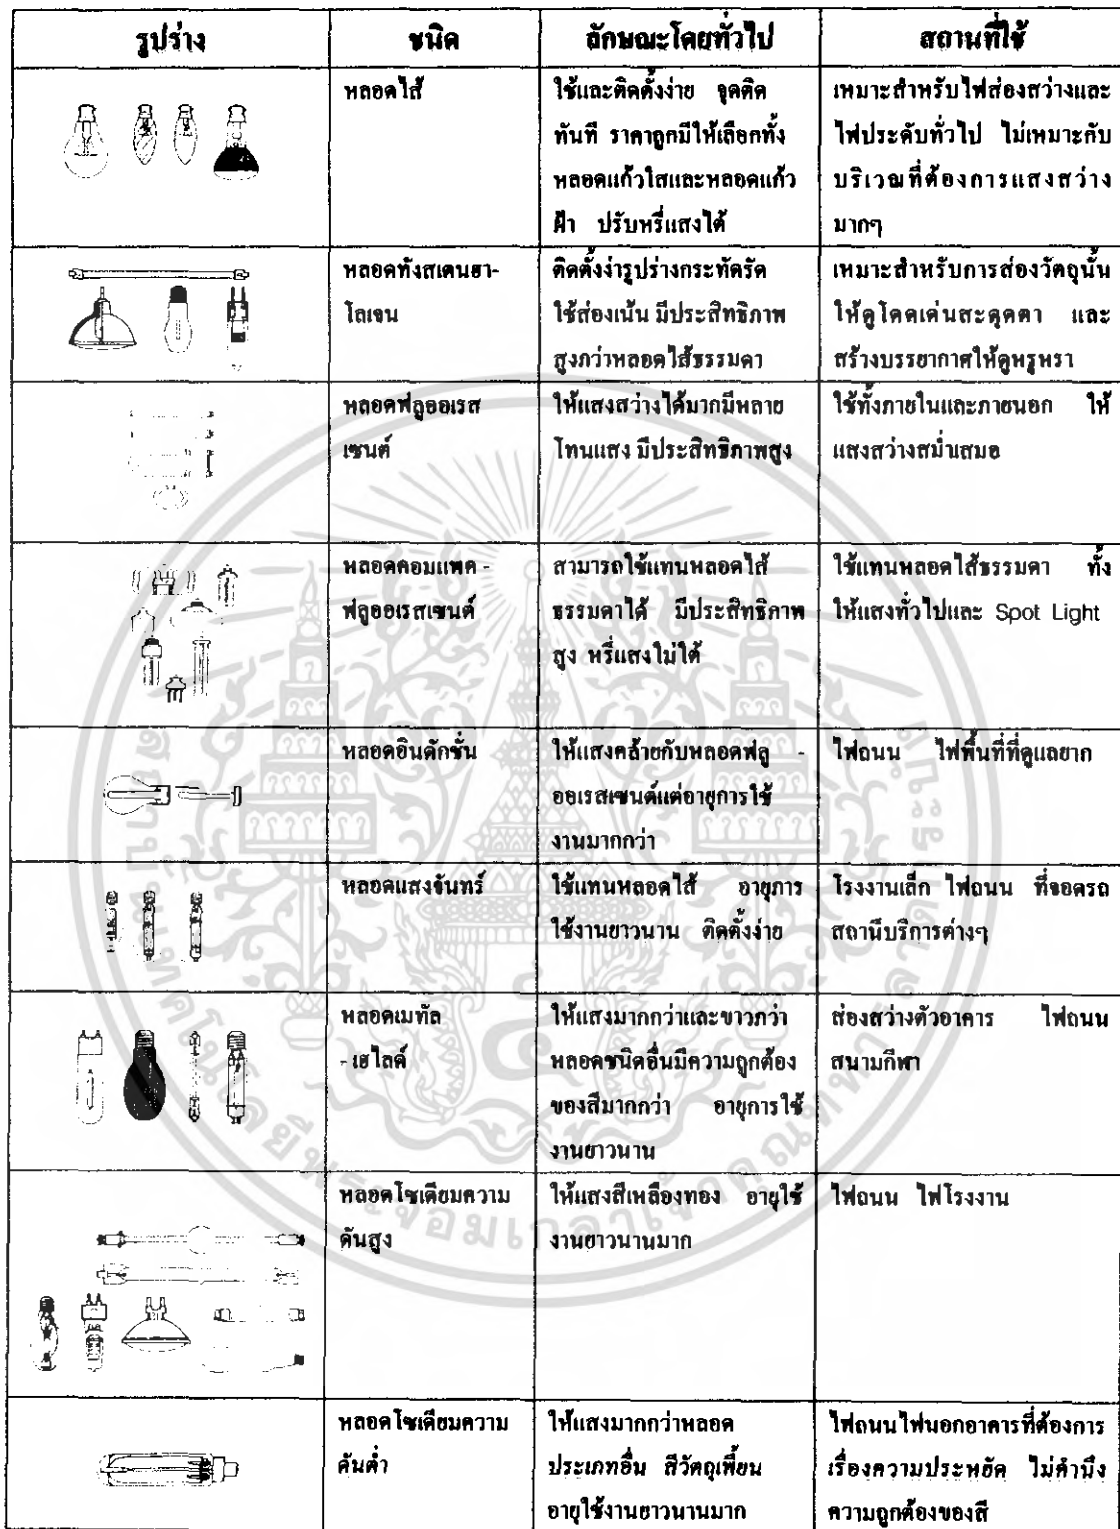 รูปร่าง ชนิด ลักษณะโดยทั่วไป สถานที่ใช้
หลอดไส้
ใช้และติดตั้งง่าย จุดติด
ทันที ราคาถูกมีให้เลือกทั้ง
หลอดแก้วใสและหลอดแก้ว
ฝ้า ปรับหรี่แสงได้
เหมาะสำหรับไฟส่องสว่างและ
ไฟประดับทั่วไป ไม่เหมาะกับ
บริเวณที่ต้องการแสงสว่าง
มากๆ
หลอดทังสเตนฮา-
โลเจน
ติดตั้งง่ารูปร่างกระทัดรัด
ใช้ส่องเน้น มีประสิทธิภาพ
สูงกว่าหลอดไส้ธรรมดา
เหมาะสำหรับการส่องวัตถุนั้น
ให้ดูโดดเด่นสะดุดตา และ
สร้างบรรยากาศให้ดูหรูหรา
หลอดฟลูออเรส
เซนต์
ให้แสงสว่างได้มากมีหลาย
โทนแสง มีประสิทธิภาพสูง
ใช้ทั้งภายในและภายนอก ให้
แสงสว่างสม่ำเสมอ
หลอดคอมแพค -
ฟลูออเรสเซนต์
สามารถใช้แทนหลอดไส้
ธรรมดาได้ มีประสิทธิภาพ
สูง หรี่แสงไม่ได้
ใช้แทนหลอดไส้ธรรมดา ทั้ง
ให้แสงทั่วไปและ Spot Light
หลอดอินดักชั่น
ให้แสงคล้ายกับหลอดฟลู -
ออเรสเซนต์แต่อายุการใช้
งานมากกว่า
ไฟถนน ไฟพื้นที่ที่ดูแลยาก
หลอดแสงจันทร์
ใช้แทนหลอดไส้ อายุการ
ใช้งานยาวนาน ติดตั้งง่าย
โรงงานเล็ก ไฟถนน ที่จอดรถ
สถานีบริการต่างๆ
หลอดเมทัล
- เฮไลด์
ให้แสงมากกว่าและขาวกว่า
หลอดชนิดอื่นมีความถูกต้อง
ของสีมากกว่า อายุการใช้
งานยาวนาน
ส่องสว่างตัวอาคาร ไฟถนน
สนามกีฬา
หลอดโซเดียมความ
ดันสูง
ให้แสงสีเหลืองทอง อายุใช้
งานยาวนานมาก
ไฟถนน ไฟโรงงาน
หลอดโซเดียมความ
ดันต่ำ
ให้แสงมากกว่าหลอด
ประเภทอื่น สีวัตถุเพี้ยน
อายุใช้งานยาวนานมาก
ไฟถนนไฟนอกอาคารที่ต้องการ
เรื่องความประหยัด ไม่คำนึง
ความถูกต้องของสี
สถาบันเทคโนโลยีพระจอมเกล้าเจ้าคุณทหารลาดกระบัง